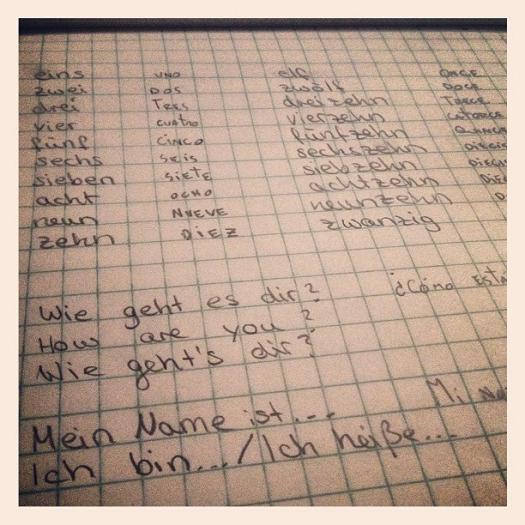 eins UNO elf ONCE
zwei DOS zwölf DOCE
drei TRES dreizehn TRECE
vier CUATRO vierzehn CATORCE
fünf CINCO fünfzehn QUINCE
sechs SEIS sechszehn
sieben SIETE siebzehn
acht OCHO achtzehn
neun NUEVE neunzehn
zehn DIEZ zwanzig
Wie geht es dir? ¿Cómo ESTA
How are you?
Wie geht's dir?
Mein Name ist... Mi
Ich bin.../Ich heiße...